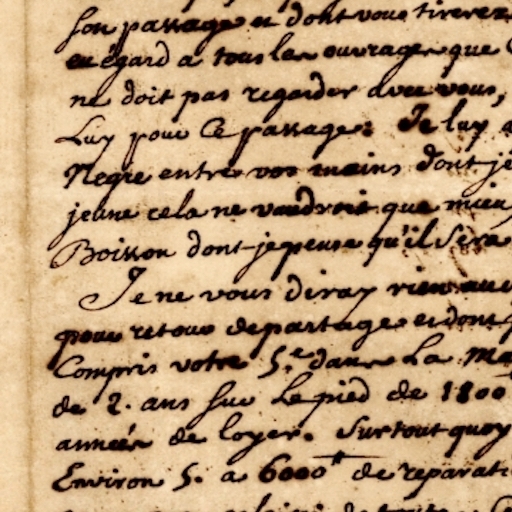 son passage et dont vous tirerez
eu égard a tous les ouvrages que
ne doit pas regarder avec vous,
Luy pour Ce passage. Je luy a
Negre entre vos mains dont je
jeune cela ne vaudroit que mieux
Boisson dont je pense qu'il sera
Je ne vous diray rien
pour retour de partage et dont
Compris votre 5.e dans La Ma
de 2. ans sur Le pied de 1800
années de loyer. Surtout quoy
Environ 5. a 6000 de reparati